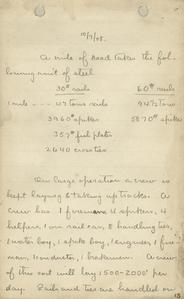 10/9/08.
A mile of road takes the fol-
lowing amt of steel
30# rails 60# rails
1 mile -- 47 tons rails 94½ tons
3960# spikes 5870# spikes
357# fish plates
2640 crossties
On large operation a crew is
kept laying & taking up tracks. A
crew has 1 foreman 4 spikers, 4
helpers, 1 on rail car, 8 handling ties,
1 water boy, 1 spike boy, 1 engineer, 1 fire-
man, 1 conductor, 1 brakeman. A crew
of this sort will lay 1500-2000' per
day. Rails and ties are handled on